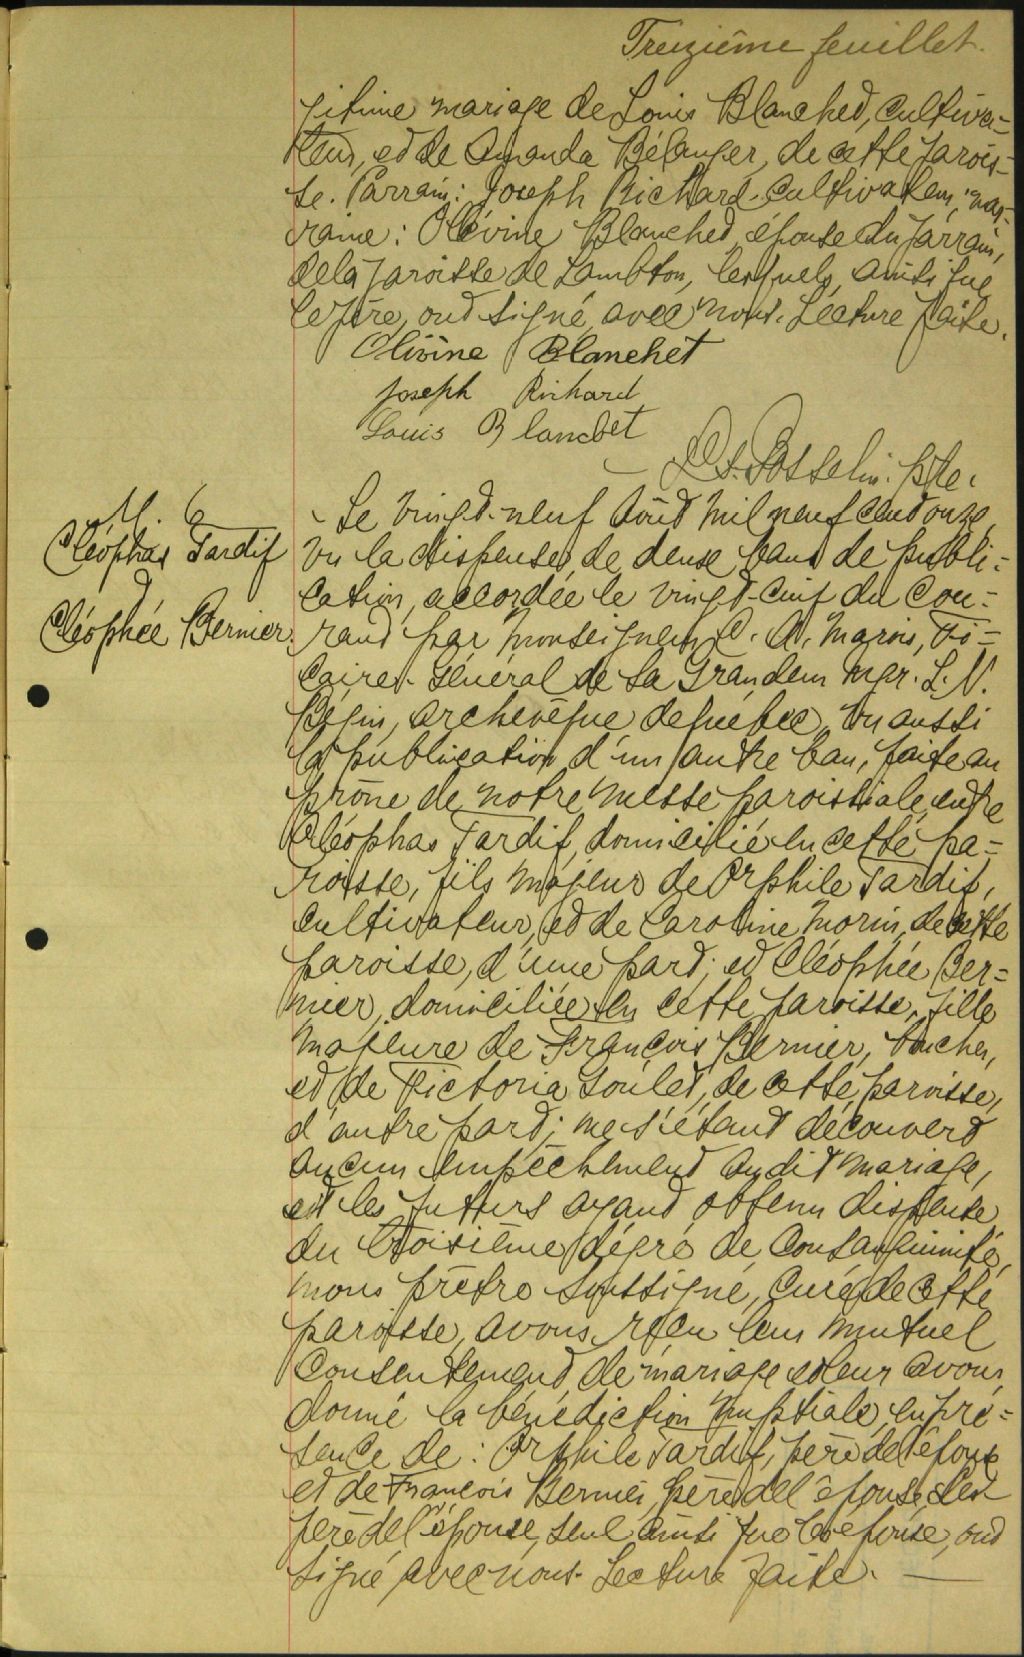 Treizième feuillet.
gitime mariage de Louis Blanched, cultiva-
teur, et de Amanda Bélanger, de cette parois-
se. Parrain: Joseph Richard cultivateur, mar-
raine: Olévine Blanched, épouse du parrain,
de la paroisse de Lambton, lesquels, ainsi que
le père, ont signé avec nous. Lecture faite.
Olivine Blanchet
Joseph Richard
Louis Blanchet
Gosselin. ptre.
M. 6
Cléophas Tardif
&
Cléophée Bernier.
Le vingt-neuf Août mil neuf cent onze,
vu la dispense de deux bans de publi-
cation, accordée le vingt-cinq du cou-
rant par Monseigneur C. A. Marois, Vi-
caire-Général de Sa Grandeur Mgr. L. N.
Bégin, archevêque de Québec, vu aussi
la publication d'un autre ban, faite au
prône de notre messe paroissiale, entre
Cléophas Tardif, domicilié en cette pa-
roisse, fils majeur de Orphile Tardif,
cultivateur, et de Caroline Morin, de cette
paroisse, d'une part; et Cléophée Ber-
nier, domiciliée en cette paroisse, fille
majeure de François Bernier, boucher,
et de Victoria Goulet, de cette paroisse,
d'autre part; ne s'étant découvert
aucun empêchement audit mariage,
et les futurs ayant obtenu dispense
du troisième dégré de consanguinité,
nous prêtre soussigné, curé de cette
paroisse, avons reçu leur mutuel
consentement de mariage et leur avons
donné la bénédiction nuptiale, en pré-
sence de: Orphile Tardif, père de l'époux
et de François Bernier, père de l'épouse,
père de l'épouse, seul ainsi que l'épouse, ont
signé avec nous. Lecture faite.